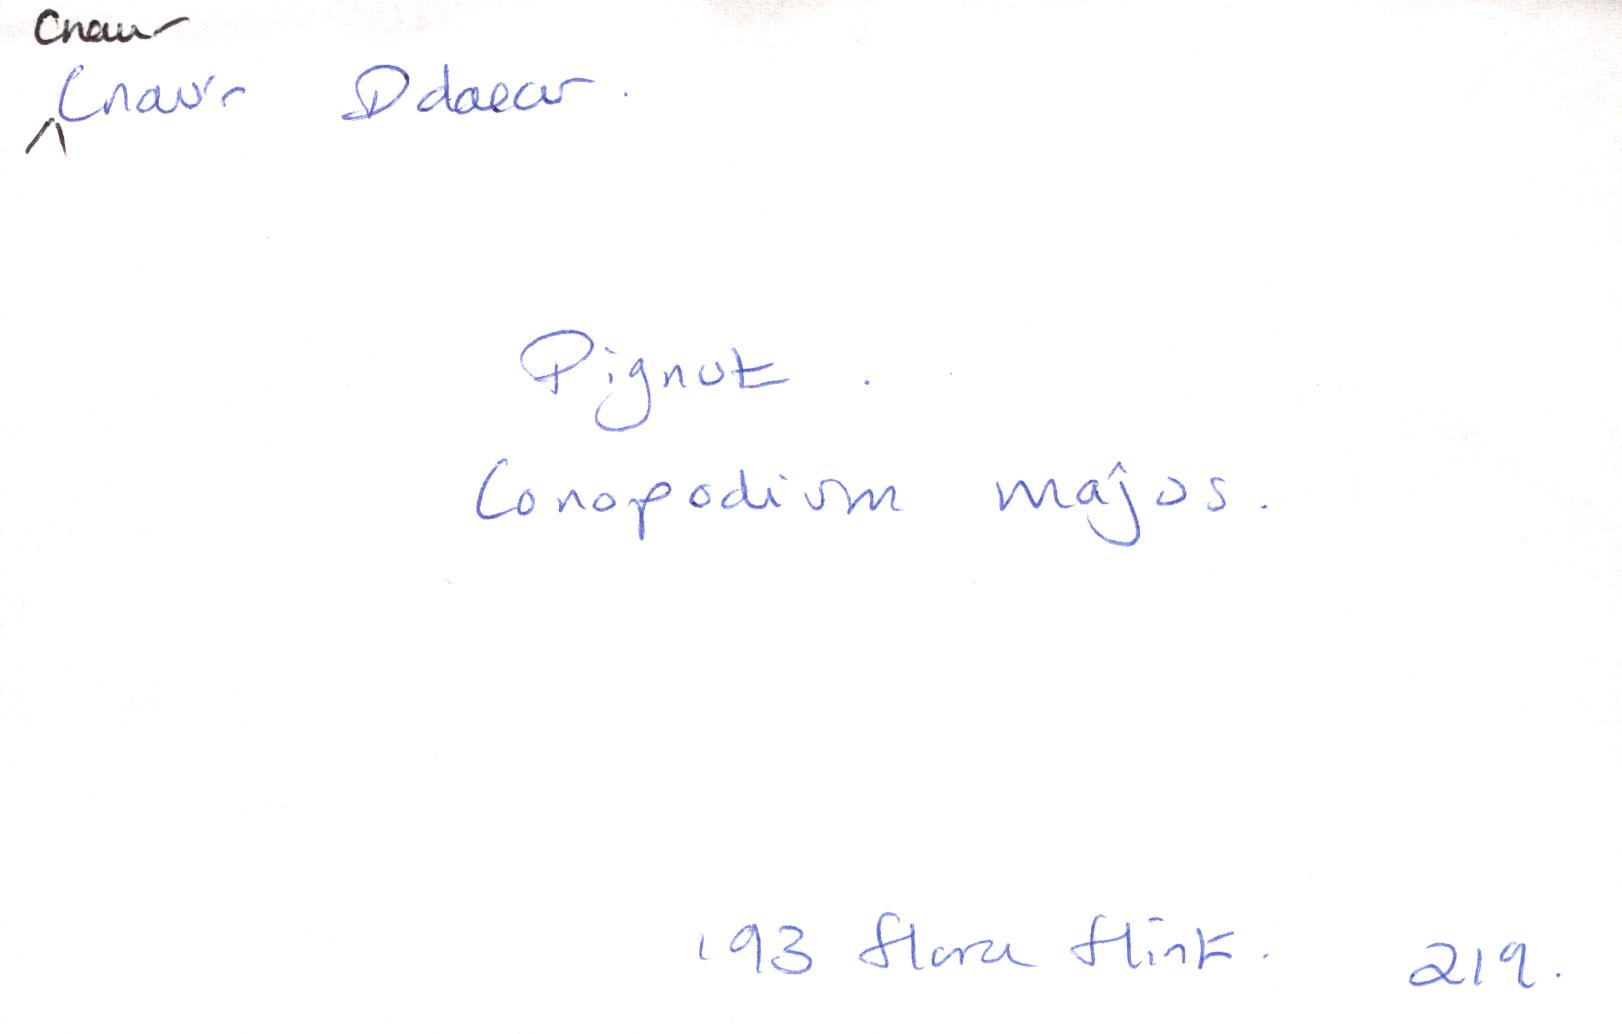 Cnau
Cnau'r Ddaear.
Pignut.
Conopodium majus.
193 flora flint. 219.